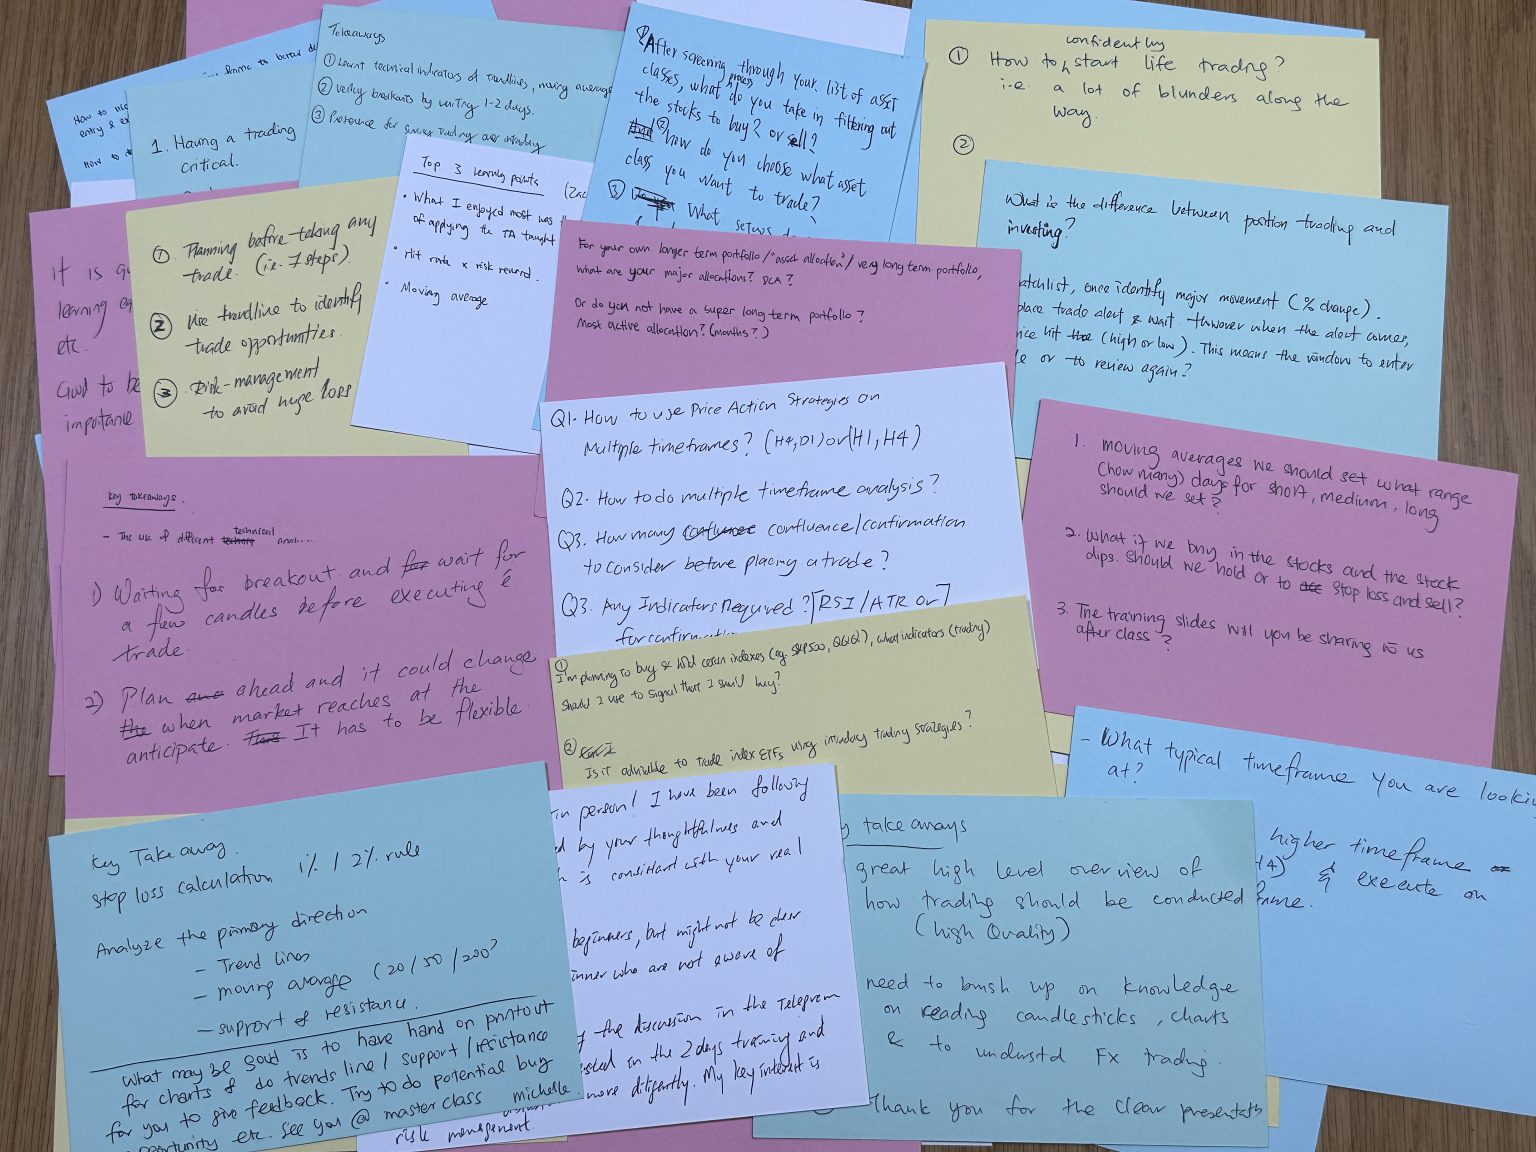 How to use
entry & ex
How to
1. Having a trading
critical.
Takeaways
① Learnt technical indicators of trendlines, moving average
② Verify breakouts by waiting 1-2 days.
③ Preference for swing trading over intraday
After screening through your list of asset
classes, what process do you take in filtering out
the stocks to buy? or sell?
② how do you choose what asset
class you want to trade?
③ What setups
① How to confidently start life trading?
i.e. a lot of blunders along the
way.
②
What is the difference between position trading and
investing?
watchlist, once identify major movement (% change).
place trade alert & wait. However when the alert comes,
price hit (high or low). This means the window to enter
or to review again?
it is
learning
etc.
Good to be
importance
① Planning before taking any
trade. (i.e. 7 steps).
② Use trendline to identify
trade opportunities.
③ Risk-management
to avoid huge loss
Top 3 Learning points
• What I enjoyed most was
of applying the TA taught
• Hit rate x risk reward.
• Moving average
For your own longer term portfolio / "asset allocation" / very long term portfolio,
what are your major allocations? DCA?
Or do you not have a super long term portfolio?
Most active allocation? (months?)
Q1. How to use Price Action Strategies on
Multiple timeframes? (H4, D1) or (H1, H4)
Q2. How to do multiple timeframe analysis?
Q3. How many confluence/confirmation
to consider before placing a trade?
Q3. Any Indicators Required? [RSI / ATR or]
for confirmation
1. moving averages we should set what range
(how many) days for short, medium, long
should we set?
2. What if we buy in the stocks and the stock
dips. Should we hold or to stop loss and sell?
3. The training slides will you be sharing to us
after class?
Key takeaways.
- The use of different technical
1) Waiting for breakout and wait for
a few candles before executing a
trade.
2) Plan ahead and it could change
when market reaches at the
anticipate. It has to be flexible.
① I'm planning to buy & hold certain indexes (eg. S&P500, QQQ), what indicators (trading)
should I use to signal that I should buy?
②
Is it advisable to trade index ETFs using intraday trading strategies?
- What typical timeframe you are looking
at?
higher timeframe
& execute on
Key Take away.
Stop loss calculation 1% / 2% rule
Analyze the primary direction
- Trend lines
- moving average (20/50/200)
- support & resistance.
What may be good is to have hand on printout
for charts & do trends line / support / resistance
for you to give feedback. Try to do potential buy
opportunity etc. See you @ masterclass michelle.
in person! I have been following
by your thoughtfulness and
is consistant with your real
beginners, but might not be clear
who are not aware of
the discussion in the Telegram
in the 2 days training and
more diligently. My key interest is
risk management.
take aways
great high level overview of
how trading should be conducted
(high Quality)
need to brush up on knowledge
on reading candlesticks, charts
& to understd FX trading.
Thank you for the clear presentatn